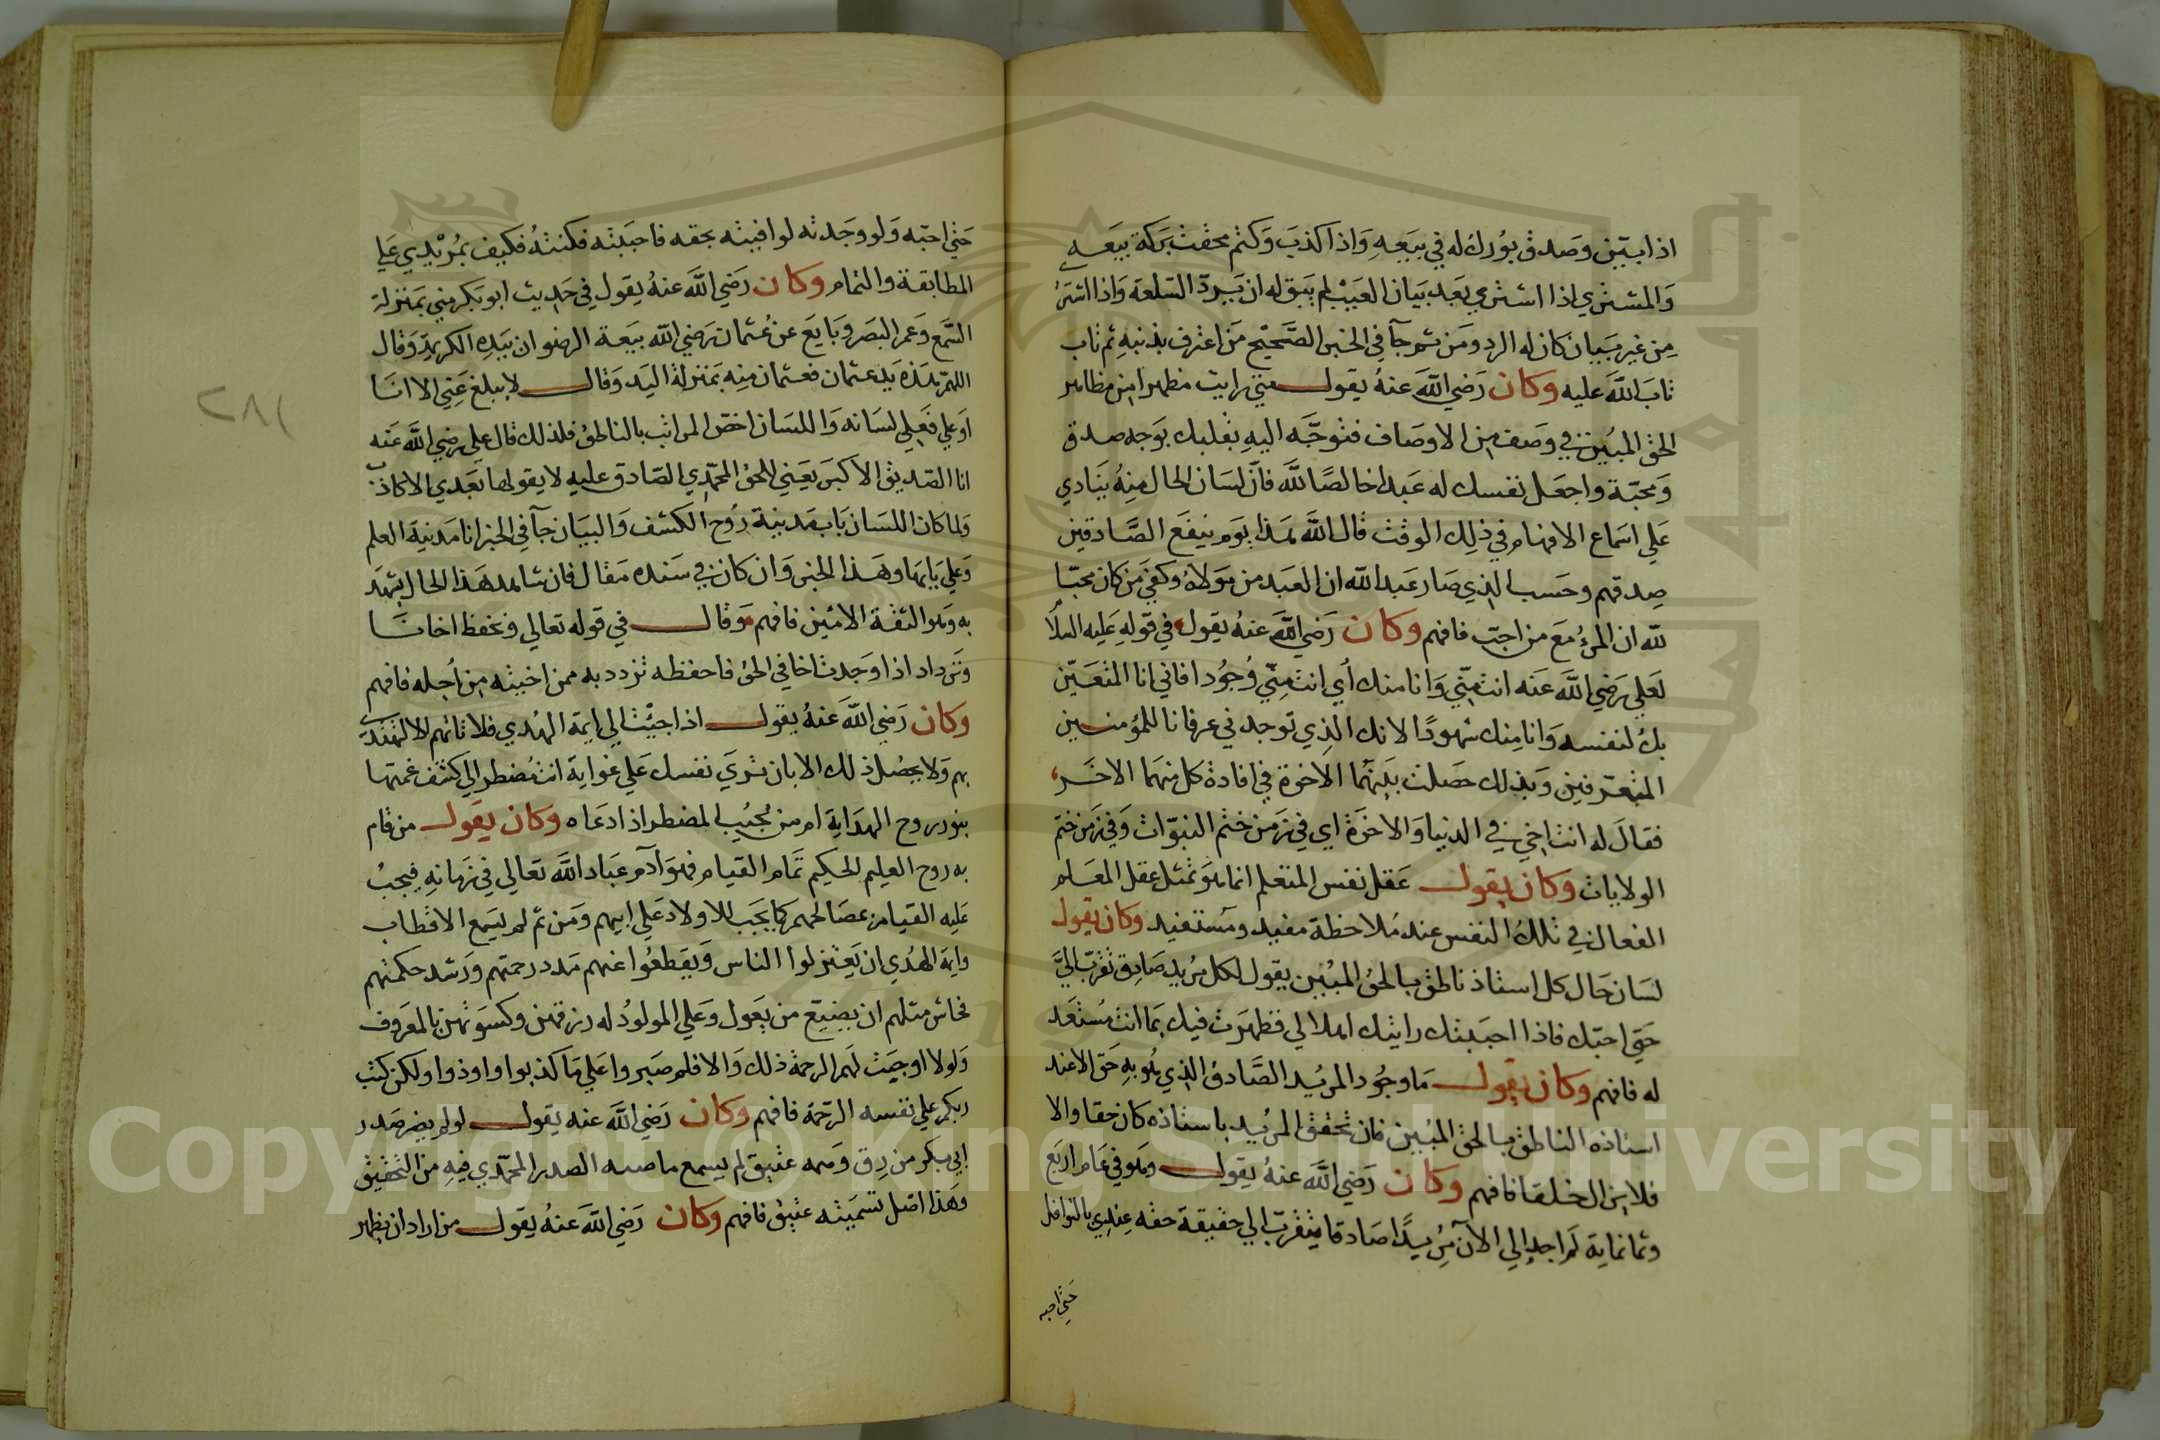 اذا بين وصدق بورك له في بيعه واذا كذب وكتم محقت بركة بيعه
والمشتري اذا اشتري بعد بيان العيب لم يبق له ان يرد السلعة واذا اشتر
من غير بيان كان له الرد ومن ثم جآ في الخبر الصحيح من اعترف بذنبه ثم تاب
تاب الله عليه وكان رضي الله عنه يقول متي رايت مظهرا من مظاهر
الحق المبين في وصف من الاوصاف فتوجه اليه بقلبك بوجه صدق
ومحبة واجعل نفسك له عبدا خالصا لله فان لسان الحال منه ينادي
علي اسماع الافهام في ذلك الوقت قال الله هذا يوم ينفع الصادقين
صدقهم وحسب الذي صار عبد الله ان العبد من مولاه وكفي من كان محبا
لله ان المرء مع من احب فافهم وكان رضي الله عنه يقول في قوله عليه السلام
لعلي رضي الله عنه انت مني وانا منك أي انت مني وجودا فاني انا المتعين
بك لنفسه وانا منك شهودا لانك الذي توجد في عرفانا للمؤمنين
المتعرفين وبذلك حصلت بينهما الاخوة في افادة كل منهما الاخر
فقال له انت اخي في الدنيا والاخرة اي في زمن ختم النبوات وفي زمن ختم
الولايات وكان يقول عقل نفس المتعلم انما هو تمثل عقل المعلم
الفعال في تلك النفس عند ملاحظة مفيد ومستفيد وكان يقول
لسان حال كل استاذ ناطق بالحق المبين يقول لكل مريد صادق تقرب الي
حتي احبك فاذا احببتك رايتك اهلا لي فظهرت فيك بما انت مستعد
له فافهم وكان يقول ما وجود المريد الصادق الذي هو به حق الا عند
استاذه الناطق بالحق المبين فان تحقق المريد باستاذه كان حقا والا
فلا يزال خلقا فافهم وكان رضي الله عنه يقول وهو في عام اربع
وثمانماية لم اجد الي الآن مريدا صادقا يتقرب الي حقيقة حقه عندي بالنوافل
حتي احبه
حتي احبه ولو وجدته لوافيته بحقه فاحببته فكنته فكيف بمريدي علي
المطابقة والتمام وكان رضي الله عنه يقول في حديث ابو بكر مني بمنزلة
السمع وعمر البصر وبايع عن عثمان رضي الله بيعة الرضوان بيده الكريمة وقال
اللهم هذه يد عثمان فعثمان منه بمنزلة اليد وقال لا يبلغ عني الا انا
او علي فعلي لسانه واللسان اخص المراتب بالناطق فلذلك قال علي رضي الله عنه
انا الصديق الاكبر يعني للحق المحمدي الصادق عليه لا يقولها بعدي الا كاذب
ولما كان اللسان باب مدينة روح الكشف والبيان جآ في الخبر انا مدينة العلم
وعلي بابها وهذا الخبر وان كان في سنده مقال فان شاهد هذا الحال يشهد
به وهو الثقة الامين فافهم وقال في قوله تعالي ونحفظ اخانا
ونزداد اذا وجدت اخا في الحق فاحفظه تزدد به ممن اخيته من اجله فافهم
وكان رضي الله عنه يقول اذا جيت الي ايمة الهدي فلا تاتهم الا لتهتدي
بهم ولا يحصل ذلك الا بان تري نفسك علي غواية انت مضطر الي كشف غمتها
بنور روح الهداية امن يجيب المضطر اذا دعاه وكان يقول من قام
به روح العليم الحكيم تمام القيام فهو آدم عباد الله تعالي في زمانه فيجب
عليه القيام بمصالحهم كما يجب للاولاد علي ابيهم ومن ثم لم يسع الاقطاب
وايمة الهدي ان يعتزلوا الناس ويقطعوا عنهم مدد رحمتهم ورشد حكمتهم
فحاش مثلهم ان يضيع من يعول وعلي المولود له رزقهن وكسوتهن بالمعروف
ولولا اوجبت لهم الرحمة ذلك والا فلم صبروا علي ما كذبوا واوذوا ولكن كتب
ربكم علي نفسه الرحمة فافهم وكان رضي الله عنه يقول لو لم يصر صدر
ابي بكر من رق وهمه عتيق لم يسمع ما صبه الصدر المحمدي فيه من التحقيق
وهذا اصل تسميته عتيق فافهم وكان رضي الله عنه يقول من اراد ان يظهر
١٨٢
Copyright © King Saud University